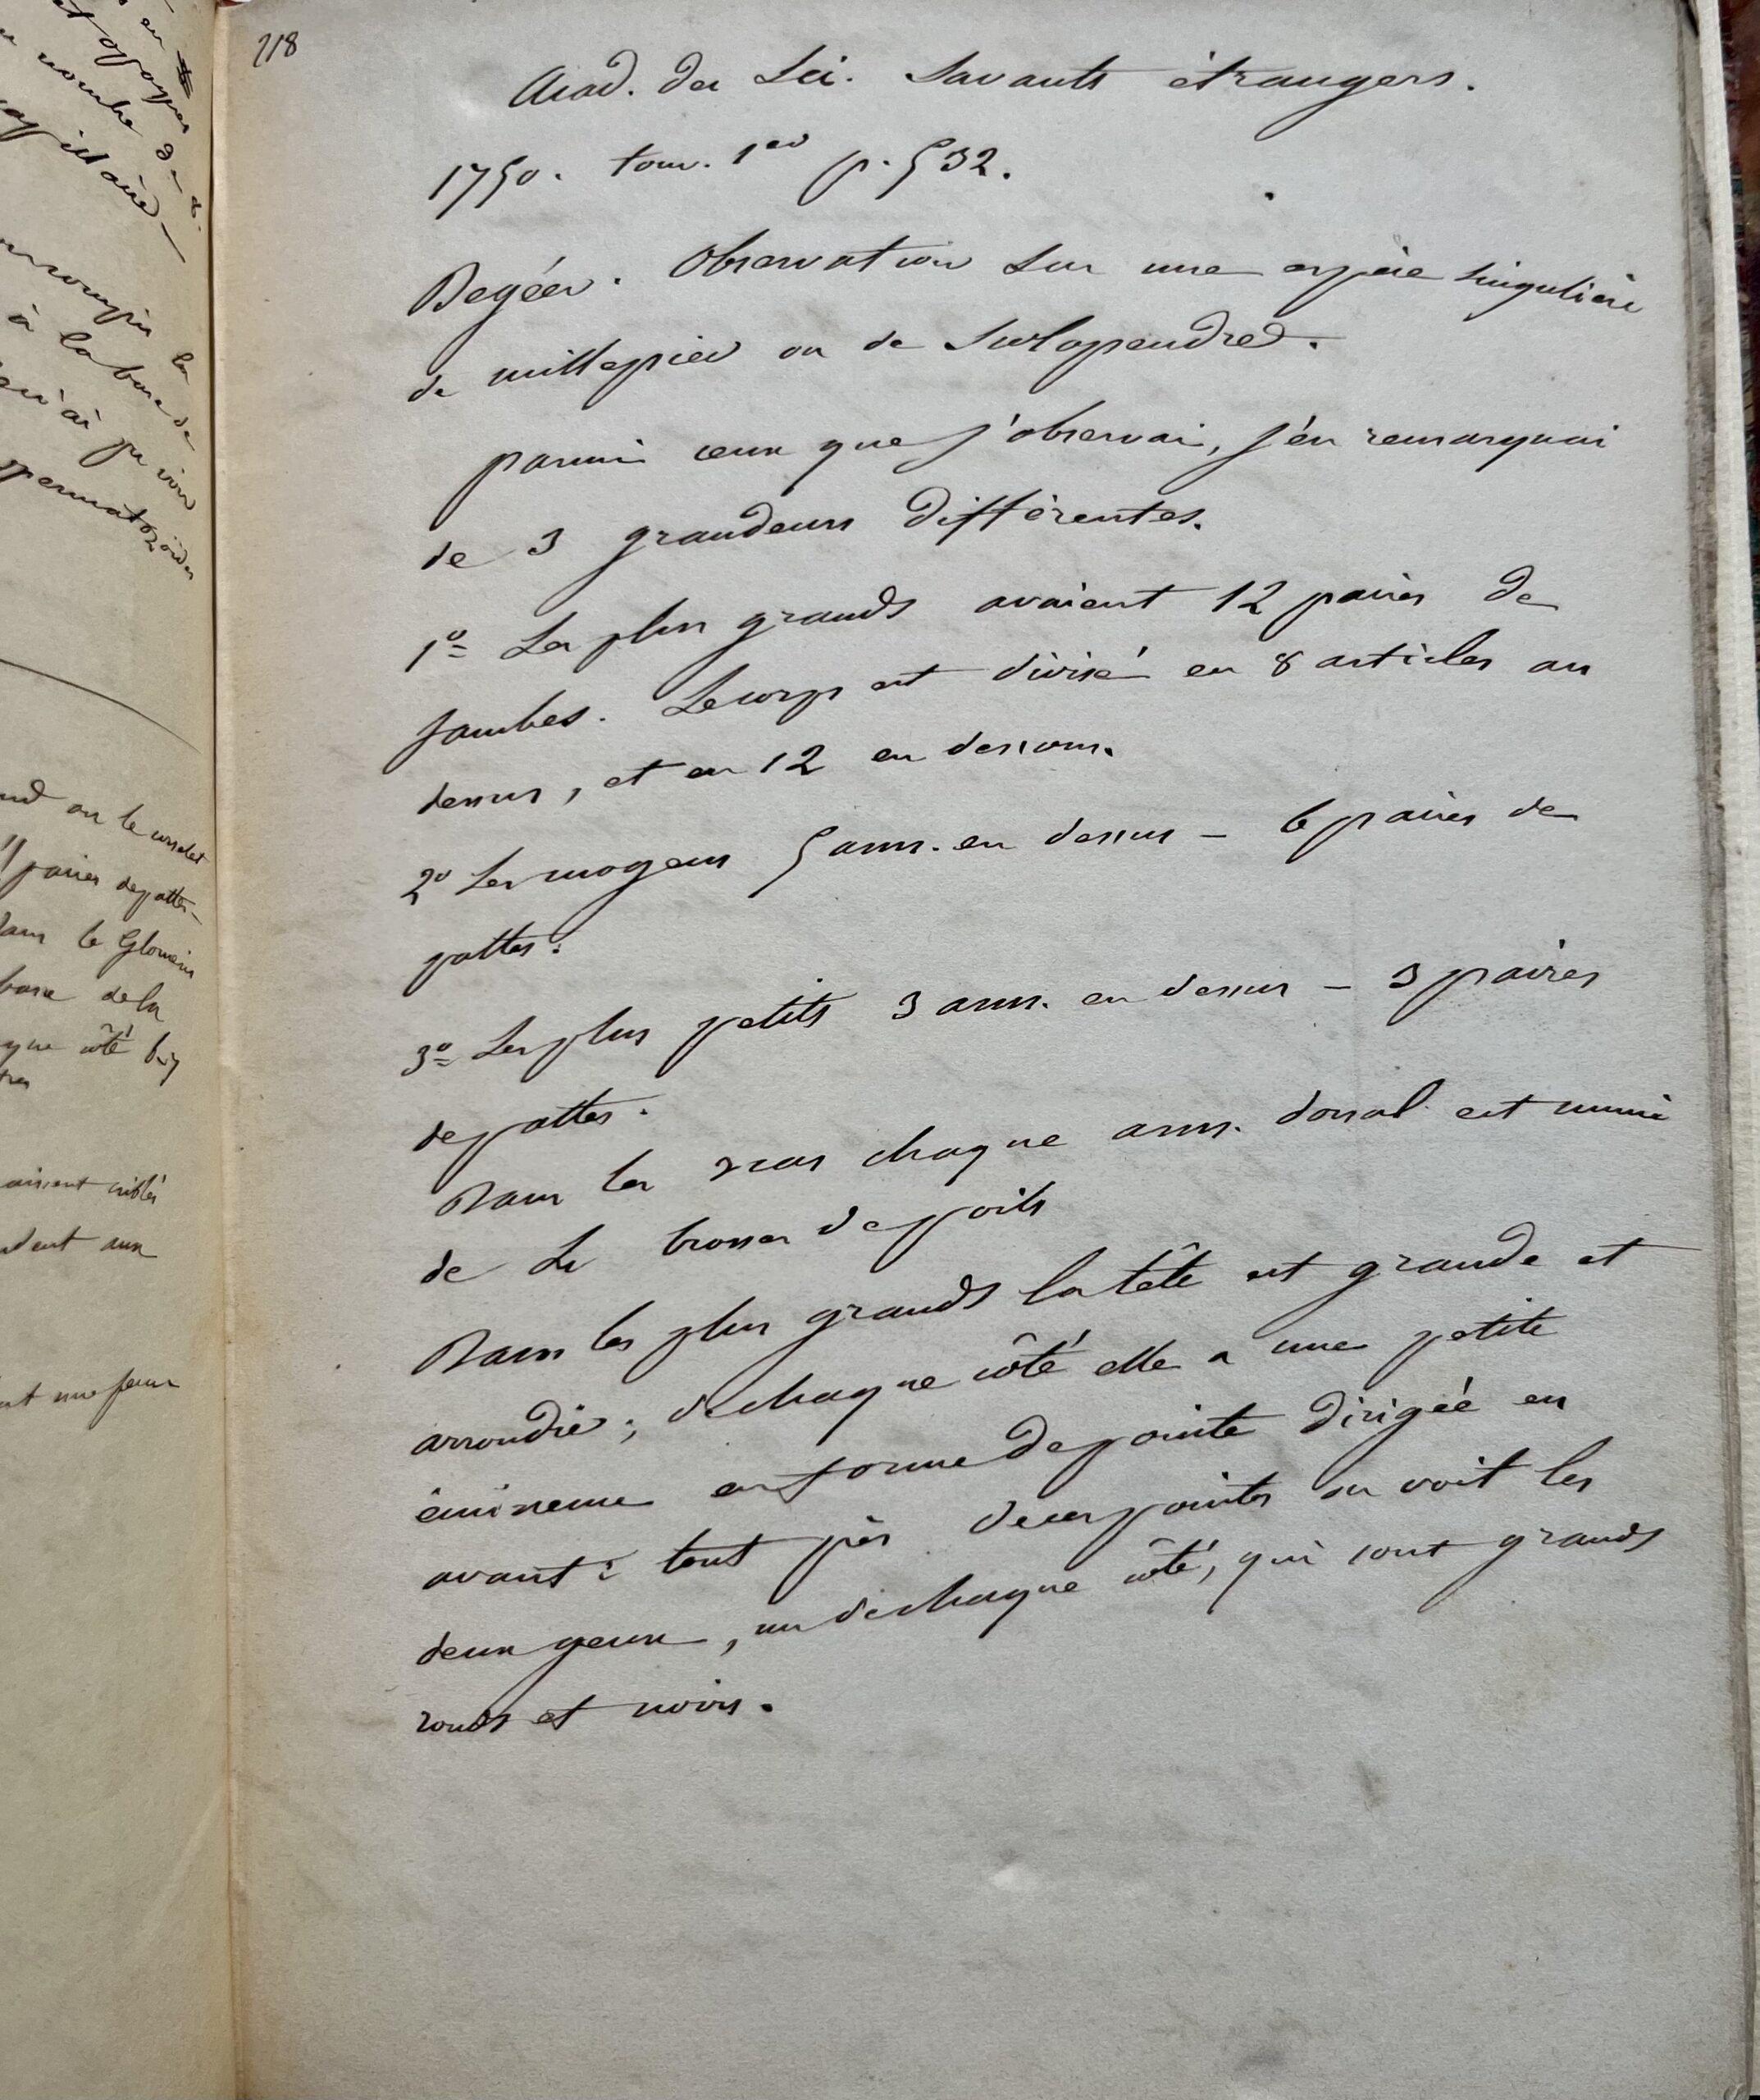 en
et
nombre de
il a été
la
à la base de
qu'ai pu voir
spermatozoïdes
on le corselet
11 paires de pattes -
dans le Glomeris
base de la
que côté
aient criblés
dent aux
118
Acad. des Sci. Savants étrangers.
1750. tom. 1er p. 532.
Degéer. Observation sur une espèce singulière
de millepied ou de Scolopendred.
parmi ceux que j'observai, j'en remarquai
de 3 grandeurs différentes.
1º Les plus grands avaient 12 paires de
jambes. Le corps est divisé en 8 articles au
dessus, et en 12 en dessous.
2º Les moyens 5 ann. en dessus - 6 paires de
pattes.
3º Les plus petits 3 ann. en dessus - 3 paires
de pattes.
Dans les chaque ann. dorsal est muni
de brosses de poils
Dans les plus grands la tête est grande et
arrondie; de chaque côté elle a une petite
éminence en forme de pointe dirigée en
avant: tout près de ces pointes on voit les
deux yeux, un de chaque côté, qui sont grands
ronds et noirs.